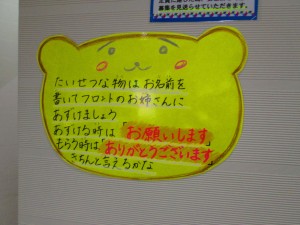 募集を見送らせていただきます。
たいせつな物はお名前を
書いてフロントのお姉さんに
あずけましょう
あずける時は「お願いします」
もらう時は「ありがとうございます」
きちんと言えるかな